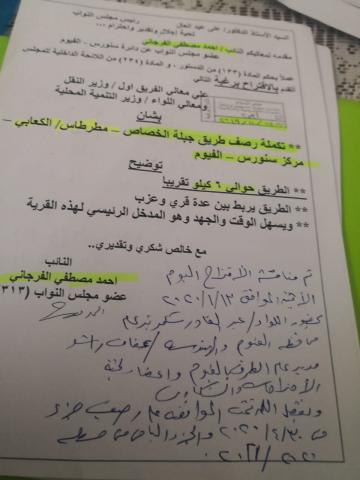 السيد الأستاذ الدكتور/ على عبد العال رئيس مجلس النواب
تحية إجلال وتقدير واحترام ...
مقدمه لمعاليكم النائب/ احمد مصطفي الفرجاني
عضو مجلس النواب عن دائرة سنورس - الفيوم
عملاً بحكم المادة (١٣٣) من الدستور ، و المادة (٢٣٤) من اللائحة الداخلية للمجلس
أتقدم بالأقتراح برغبة التالي
على معالي الفريق اول / وزير النقل
ومعالي اللواء/ وزير التنمية المحلية
بشان
** تكملة رصف طريق جبلة الخصاص – مطرطاس/ الكعابي –
مركز سنورس – الفيوم
توضيح
** الطريق حوالي ٦ كيلو تقريبا
** الطريق يربط بين عدة قري وعزب
** ويسهل الوقت والجهد وهو المدخل الرئيسي لهذه القرية
مع خالص شكري وتقديري..
النائب
احمد مصطفي الفرجاني
عضو مجلس النواب (٣١٣)
تم مناقشة الاقتراح اليوم
الموافق ٢٠٢٠/١/١٣
بحضور اللواء/ عبر القادر
محافظ الفيوم والمهندسة/ عفاف راشد
مدير عام الطرق بالفيوم واعضاء لجنة
الموافقة على رصف جزء
٢٠٢٠/٤/٣٠ والجزء الباقى